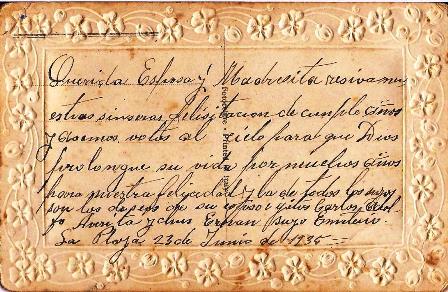 Querida Esposa y Madresita resivamus
estas sinseras felisitacion de cumple años
y asemos votos al cielo para que Dios
prolongue su vida por muchos años
para nuestra felicidad y la de todos los suyos
son los deseos de su esposo e hijos Carlos
y Luis Ernan Hugo Emeterio
La Playa 23 de Junio de 1935